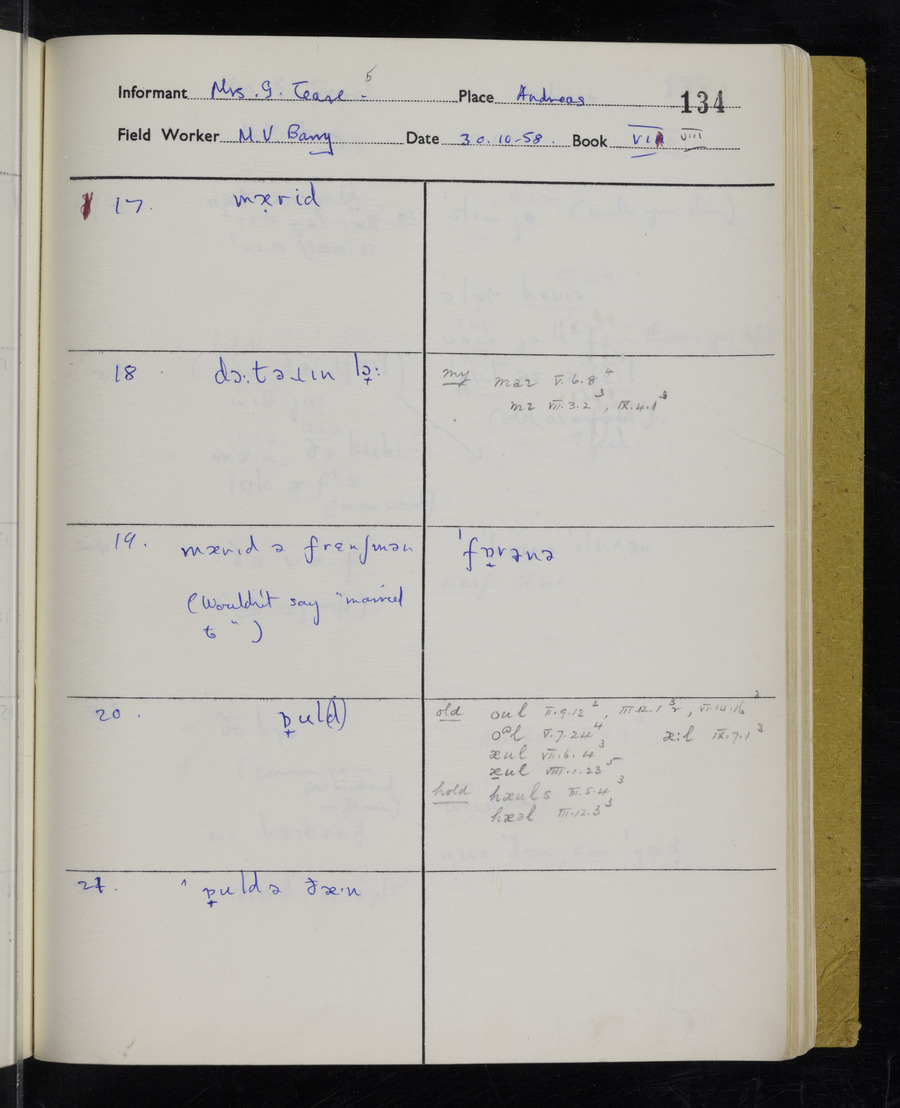 5
Informant Mrs. G. Teare - Place Andreas 134
Field Worker M.V Barry Date 30.10-58. Book VIII
17. mærid
18. də:təɹɪn lə̟:
my maɪ V.6.8 4
mɪ VII.3.2 3, IX.4.1 3
19. mærɪd ə frenʃmən
ˈfɒrənə
(Wouldn't say "married
to")
20. ɒ̟ul(d)
old oul II.9.12 2, III.12.1 3, VI.14.16 3
oəl V.7.24 4 æ:l IX.7.1 3
æul VII.6.4 3
æul VIII.1.23 5
hold hæuls III.5.4 3
hæəl III.12.3 3
21. ˈɒ̟uldə ðæ·n